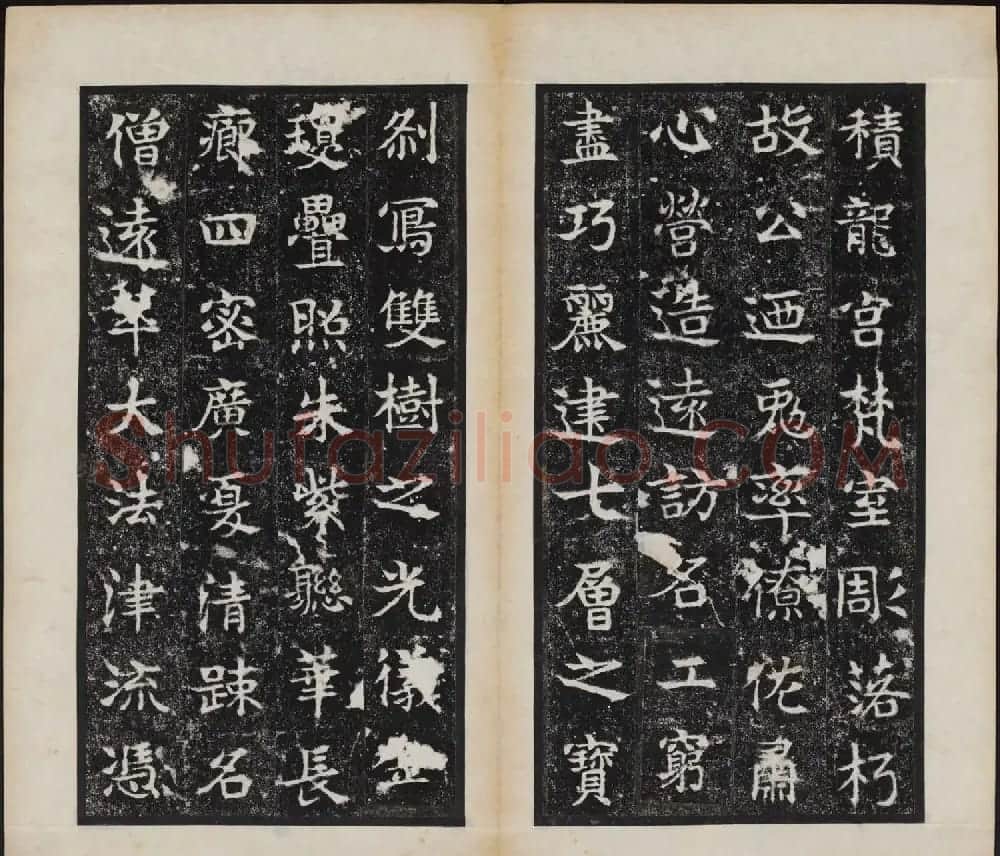 積龍宮梵室彫落朽
故公迺率僚佐肅
心營造遠訪名工窮
盡巧麗建七層之寶
刹寫雙樹之光儀
瓊疊照朱紫聯華長
廊四密廣廈清踈名
僧遠萃大法津流憑
Shufaziliao.COM